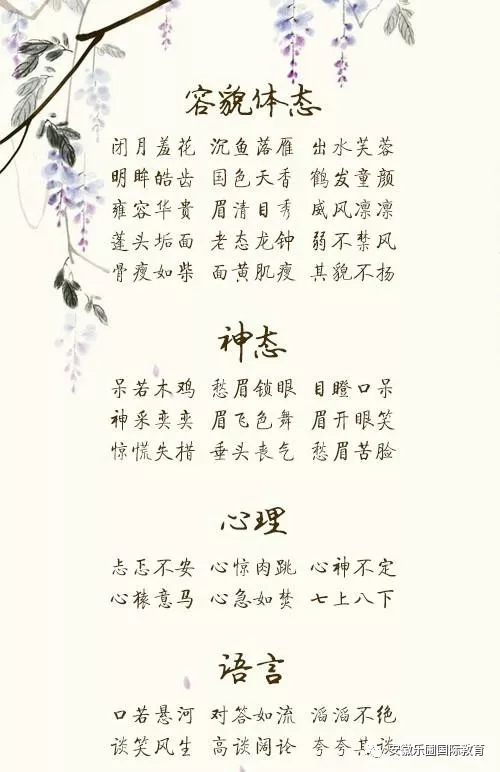 容貌体态
闭月羞花 沉鱼落雁 出水芙蓉
明眸皓齿 国色天香 鹤发童颜
雍容华贵 眉清目秀 威风凛凛
蓬头垢面 老态龙钟 弱不禁风
骨瘦如柴 面黄肌瘦 其貌不扬
神态
呆若木鸡 愁眉锁眼 目瞪口呆
神采奕奕 眉飞色舞 眉开眼笑
惊慌失措 垂头丧气 愁眉苦脸
心理
忐忑不安 心惊肉跳 心神不定
心猿意马 心急如焚 七上八下
语言
口若悬河 对答如流 滔滔不绝
谈笑风生 高谈阔论 夸夸其谈
安徽乐画国际教育